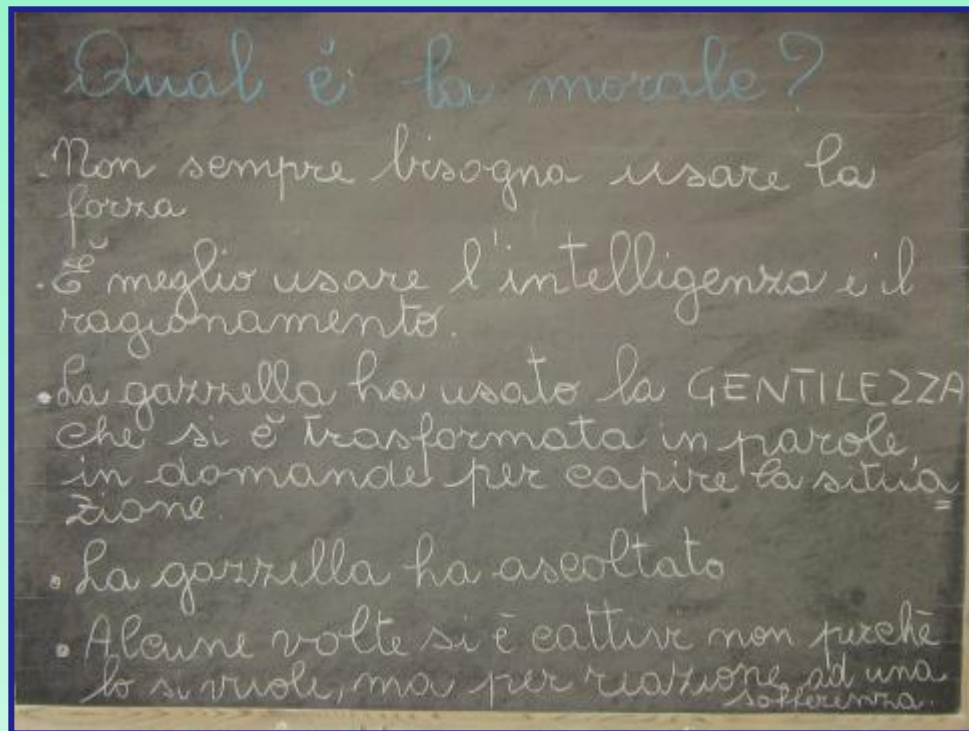 Qual è la morale?
. Non sempre bisogna usare la
forza
. È meglio usare l'intelligenza e il
ragionamento.
. La gazzella ha usato la GENTILEZZA
che si è trasformata in parole,
in domande per capire la situa
zione.
. La gazzella ha ascoltato
. Alcune volte si è cattivi non perchè
lo si vuole, ma per reazione ad una
sofferenza.